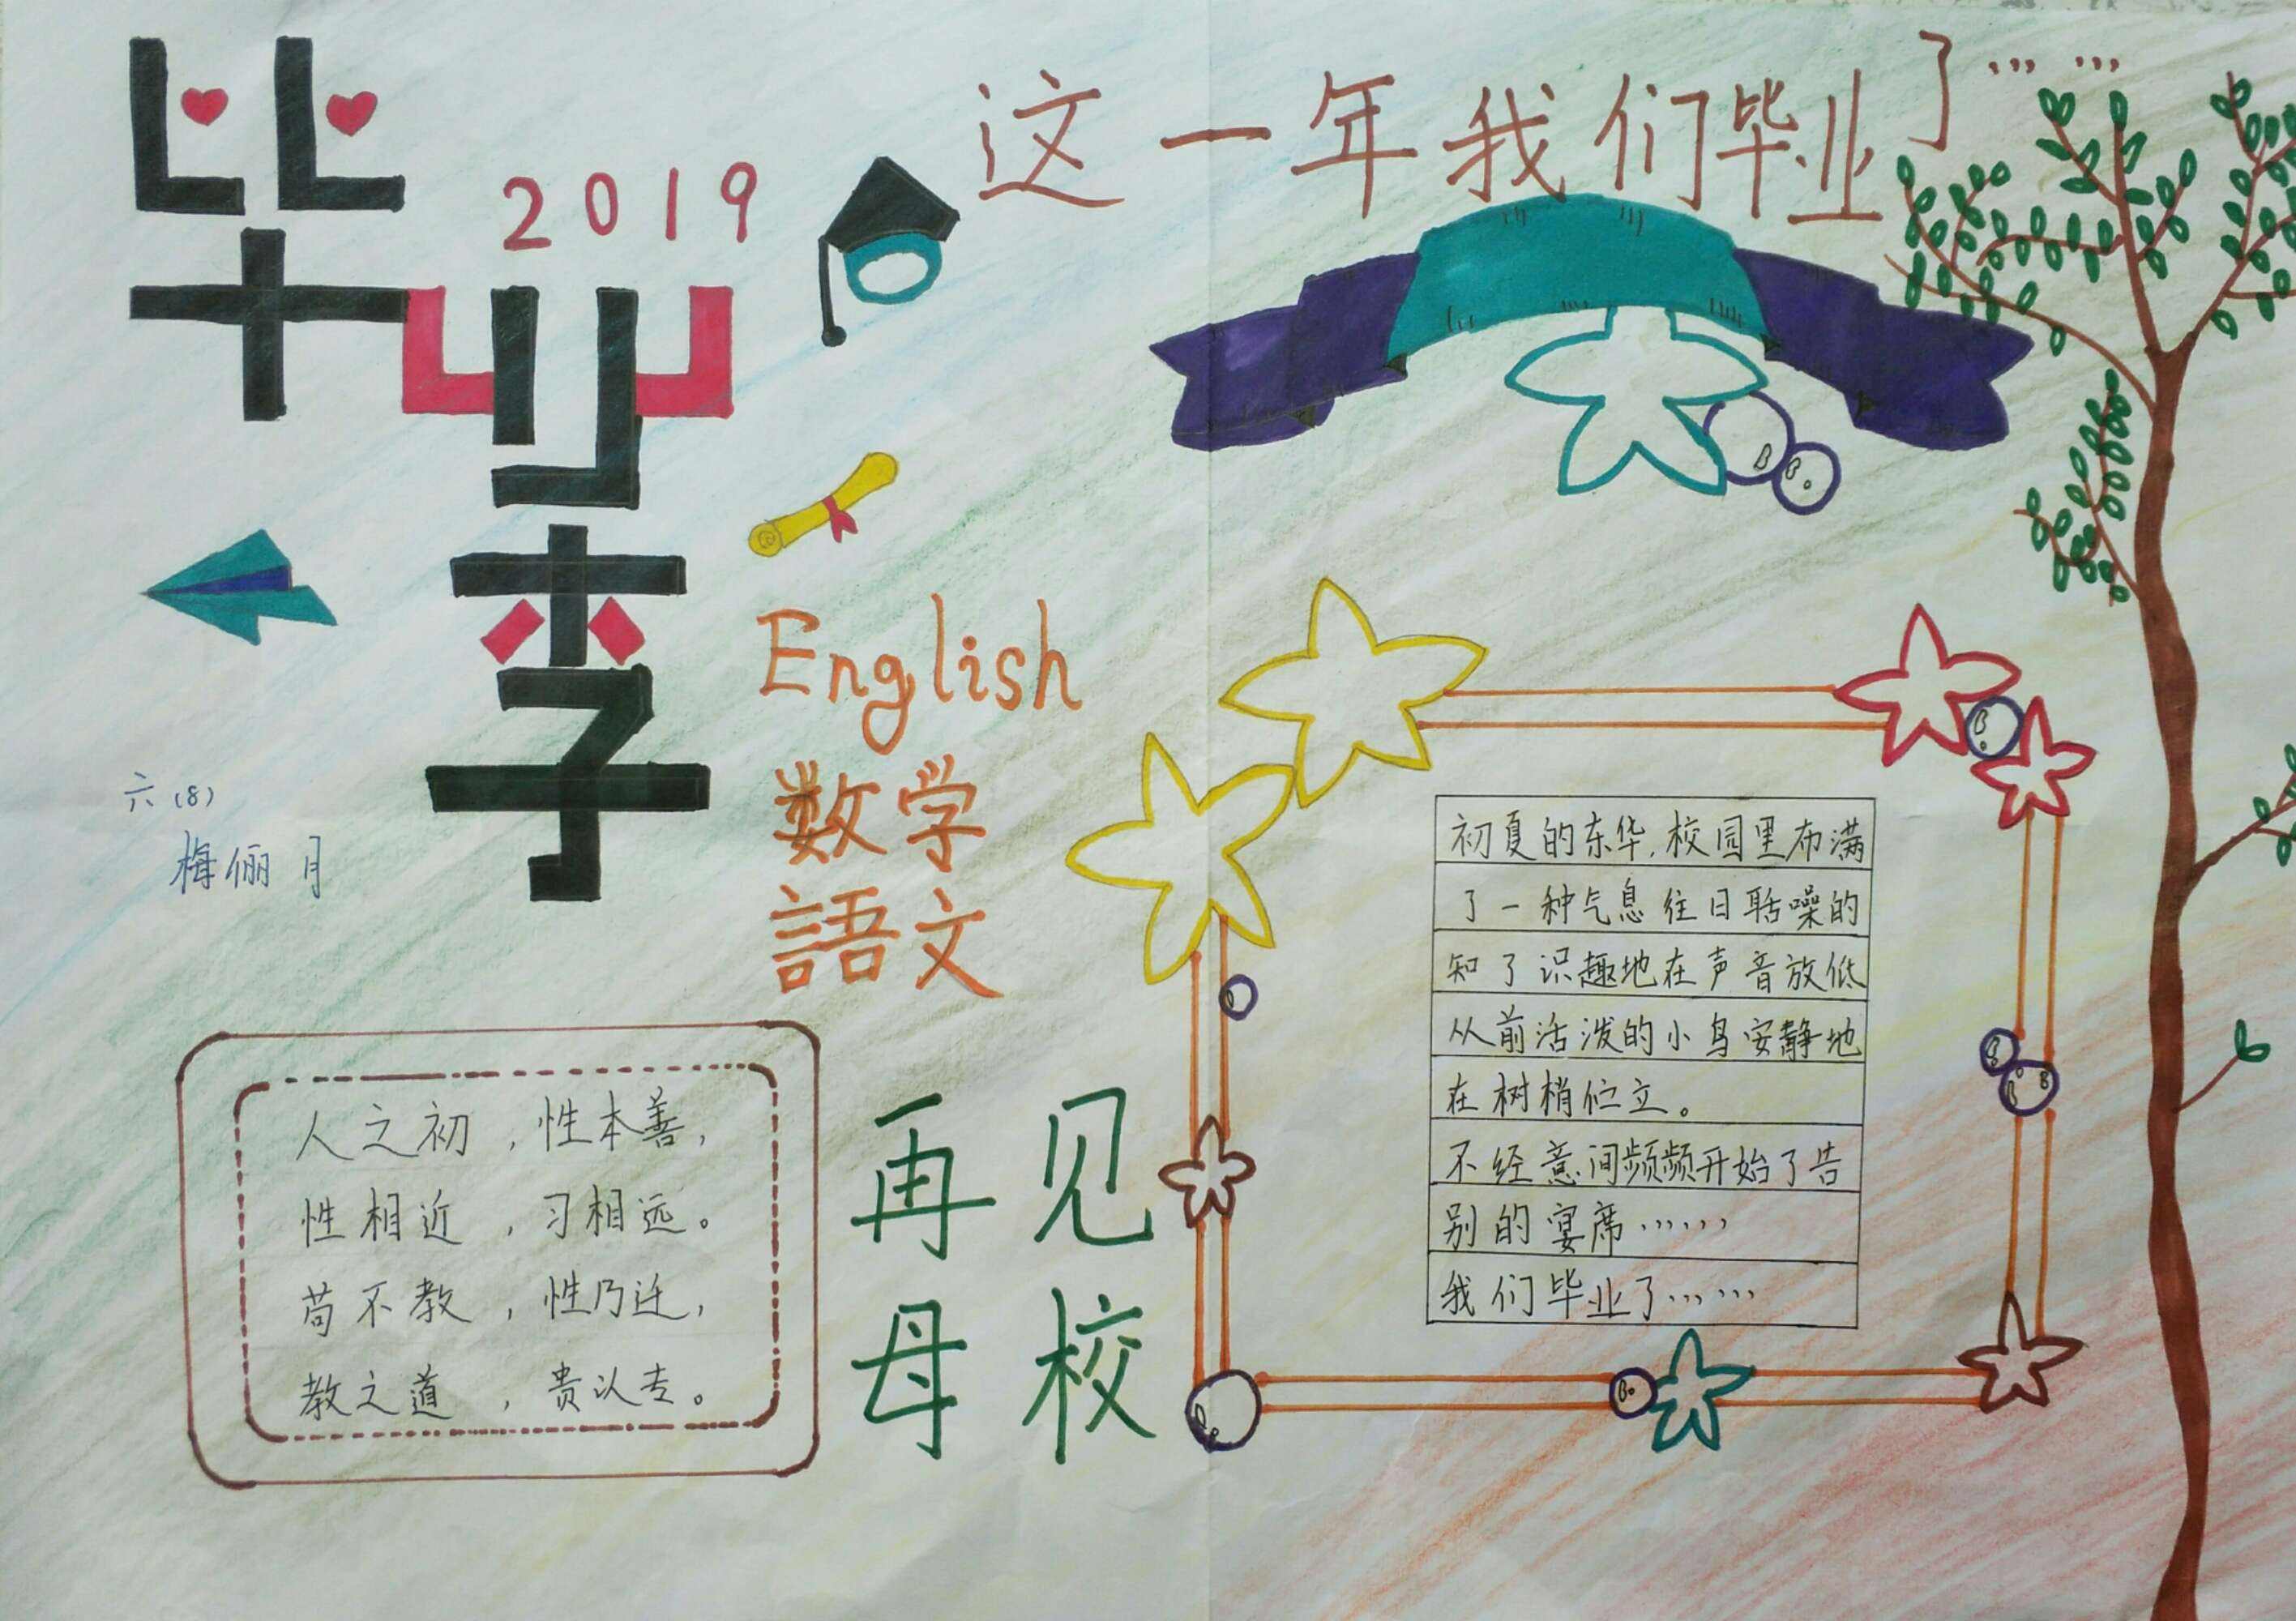 毕业季
2019
这一年我们毕业了……
English
数学
語文
六(8)
梅俪月
人之初，性本善，
性相近，习相远。
苟不教，性乃迁，
教之道，贵以专。
再见
母校
初夏的东华，校园里布满
了一种气息往日聒噪的
知了识趣地在声音放低
从前活泼的小鸟安静地
在树梢伫立。
不经意间频频开始了告
别的宴席……
我们毕业了……